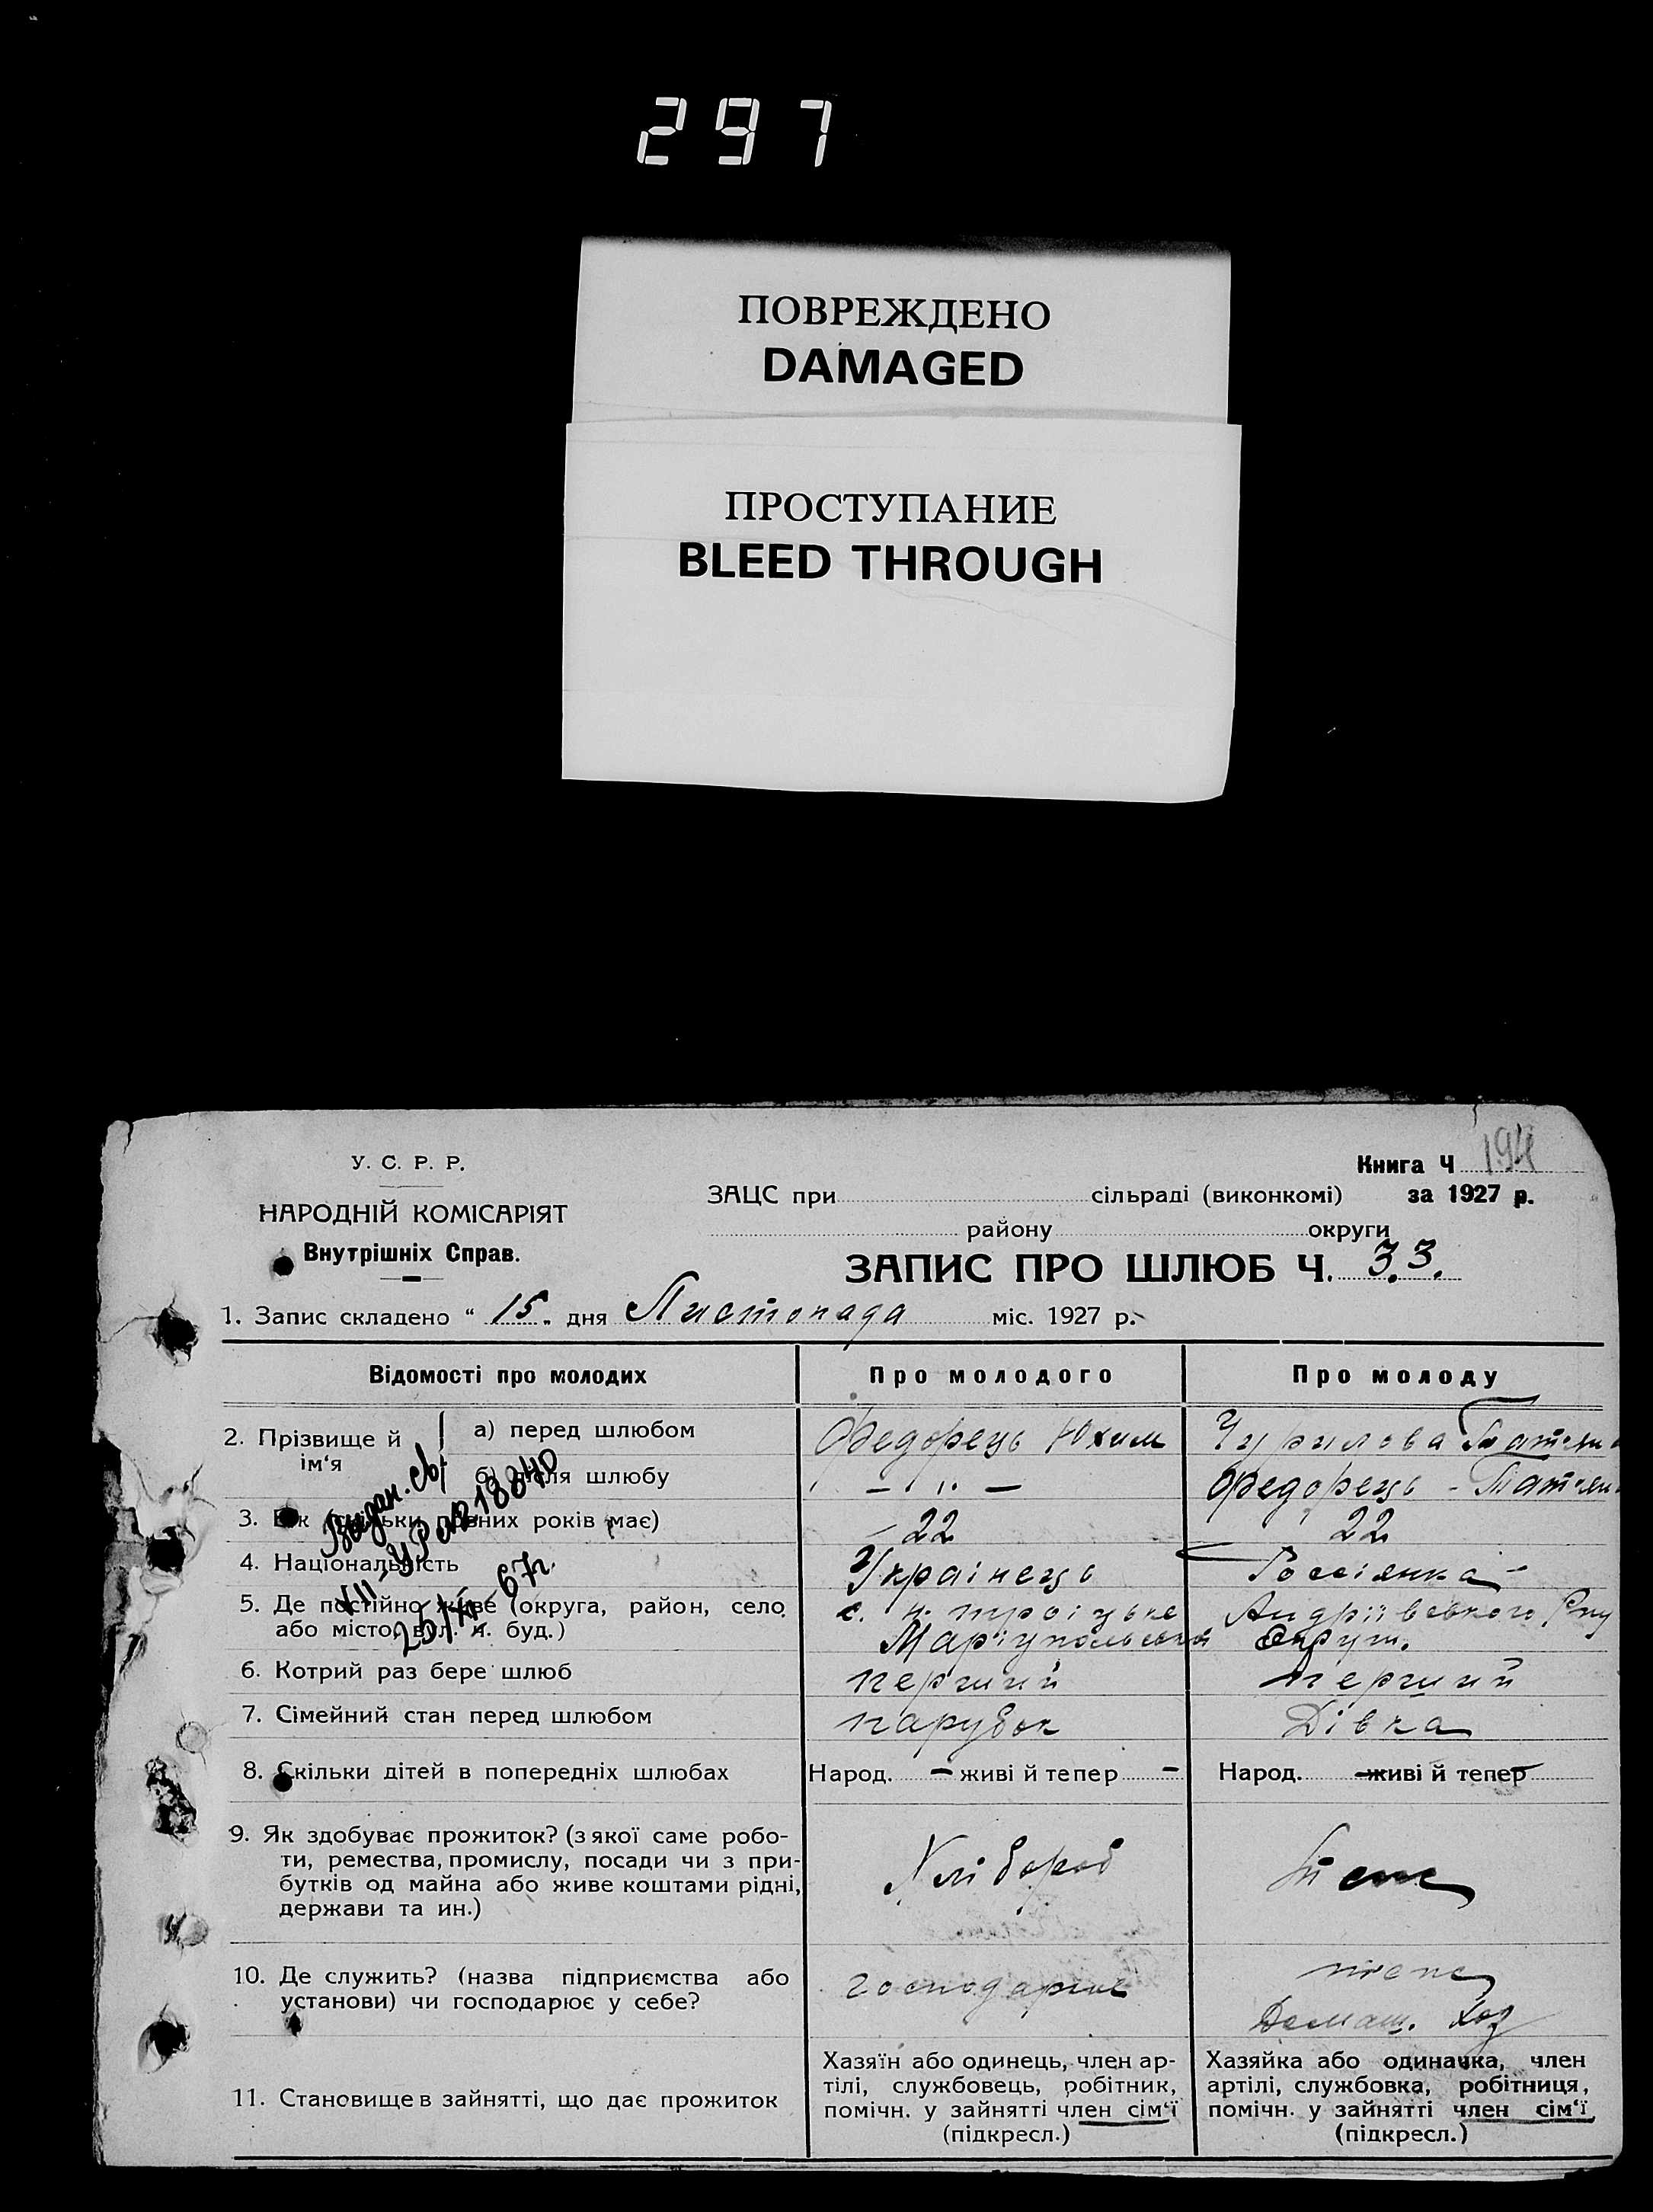 297
ПОВРЕЖДЕНО
DAMAGED
ПРОСТУПАНИЕ
BLEED THROUGH
У. С. Р. Р.
НАРОДНІЙ КОМІСАРІЯТ
Внутрішніх Справ.
Книга Ч 194
ЗАЦС при сільраді (виконкомі) за 1927 р.
району округи
ЗАПИС ПРО ШЛЮБ Ч. 33.
1. Запис складено " 15 „ дня Листопада міс. 1927 р.
Відомості про молодих Про молодого Про молоду
2. Прізвище й ім‘я
а) перед шлюбом Федорець Юхим Чурилова Татяна
б) після шлюбу — „ — Федорець - Татяна
Видан. св
VII-УР № 18840
25/XI 67г.
3. Вік (скільки повних років має) 22 22
4. Національність Українець Россіянка
5. Де постійно живе (округа, район, село, або місто, вул. ч. буд.)
с. Н. Троіцьке Андріівського Р-ну
Маріупольської Округи.
6. Котрий раз бере шлюб перший перший
7. Сімейний стан перед шлюбом парубок Дівка
8. Скільки дітей в попередніх шлюбах Народ. — живі й тепер — Народ. — живі й тепер —
9. Як здобуває прожиток? (з якої саме робо-
ти, ремества, промислу, посади чи з при-
бутків од майна або живе коштами рідні,
держави та ин.)
Хлібороб
10. Де служить? (назва підприємства або
установи) чи господарює у себе?
господарює
Домаш. Хоз
11. Становище в зайнятті, що дає прожиток
Хазяїн або одинець, член ар-
тілі, службовець, робітник,
помічн. у зайнятті член сім‘ї
(підкресл.)
Хазяйка або одиначка, член
артілі, службовка, робітниця,
помічн. у зайнятті член сім‘ї
(підкресл.)